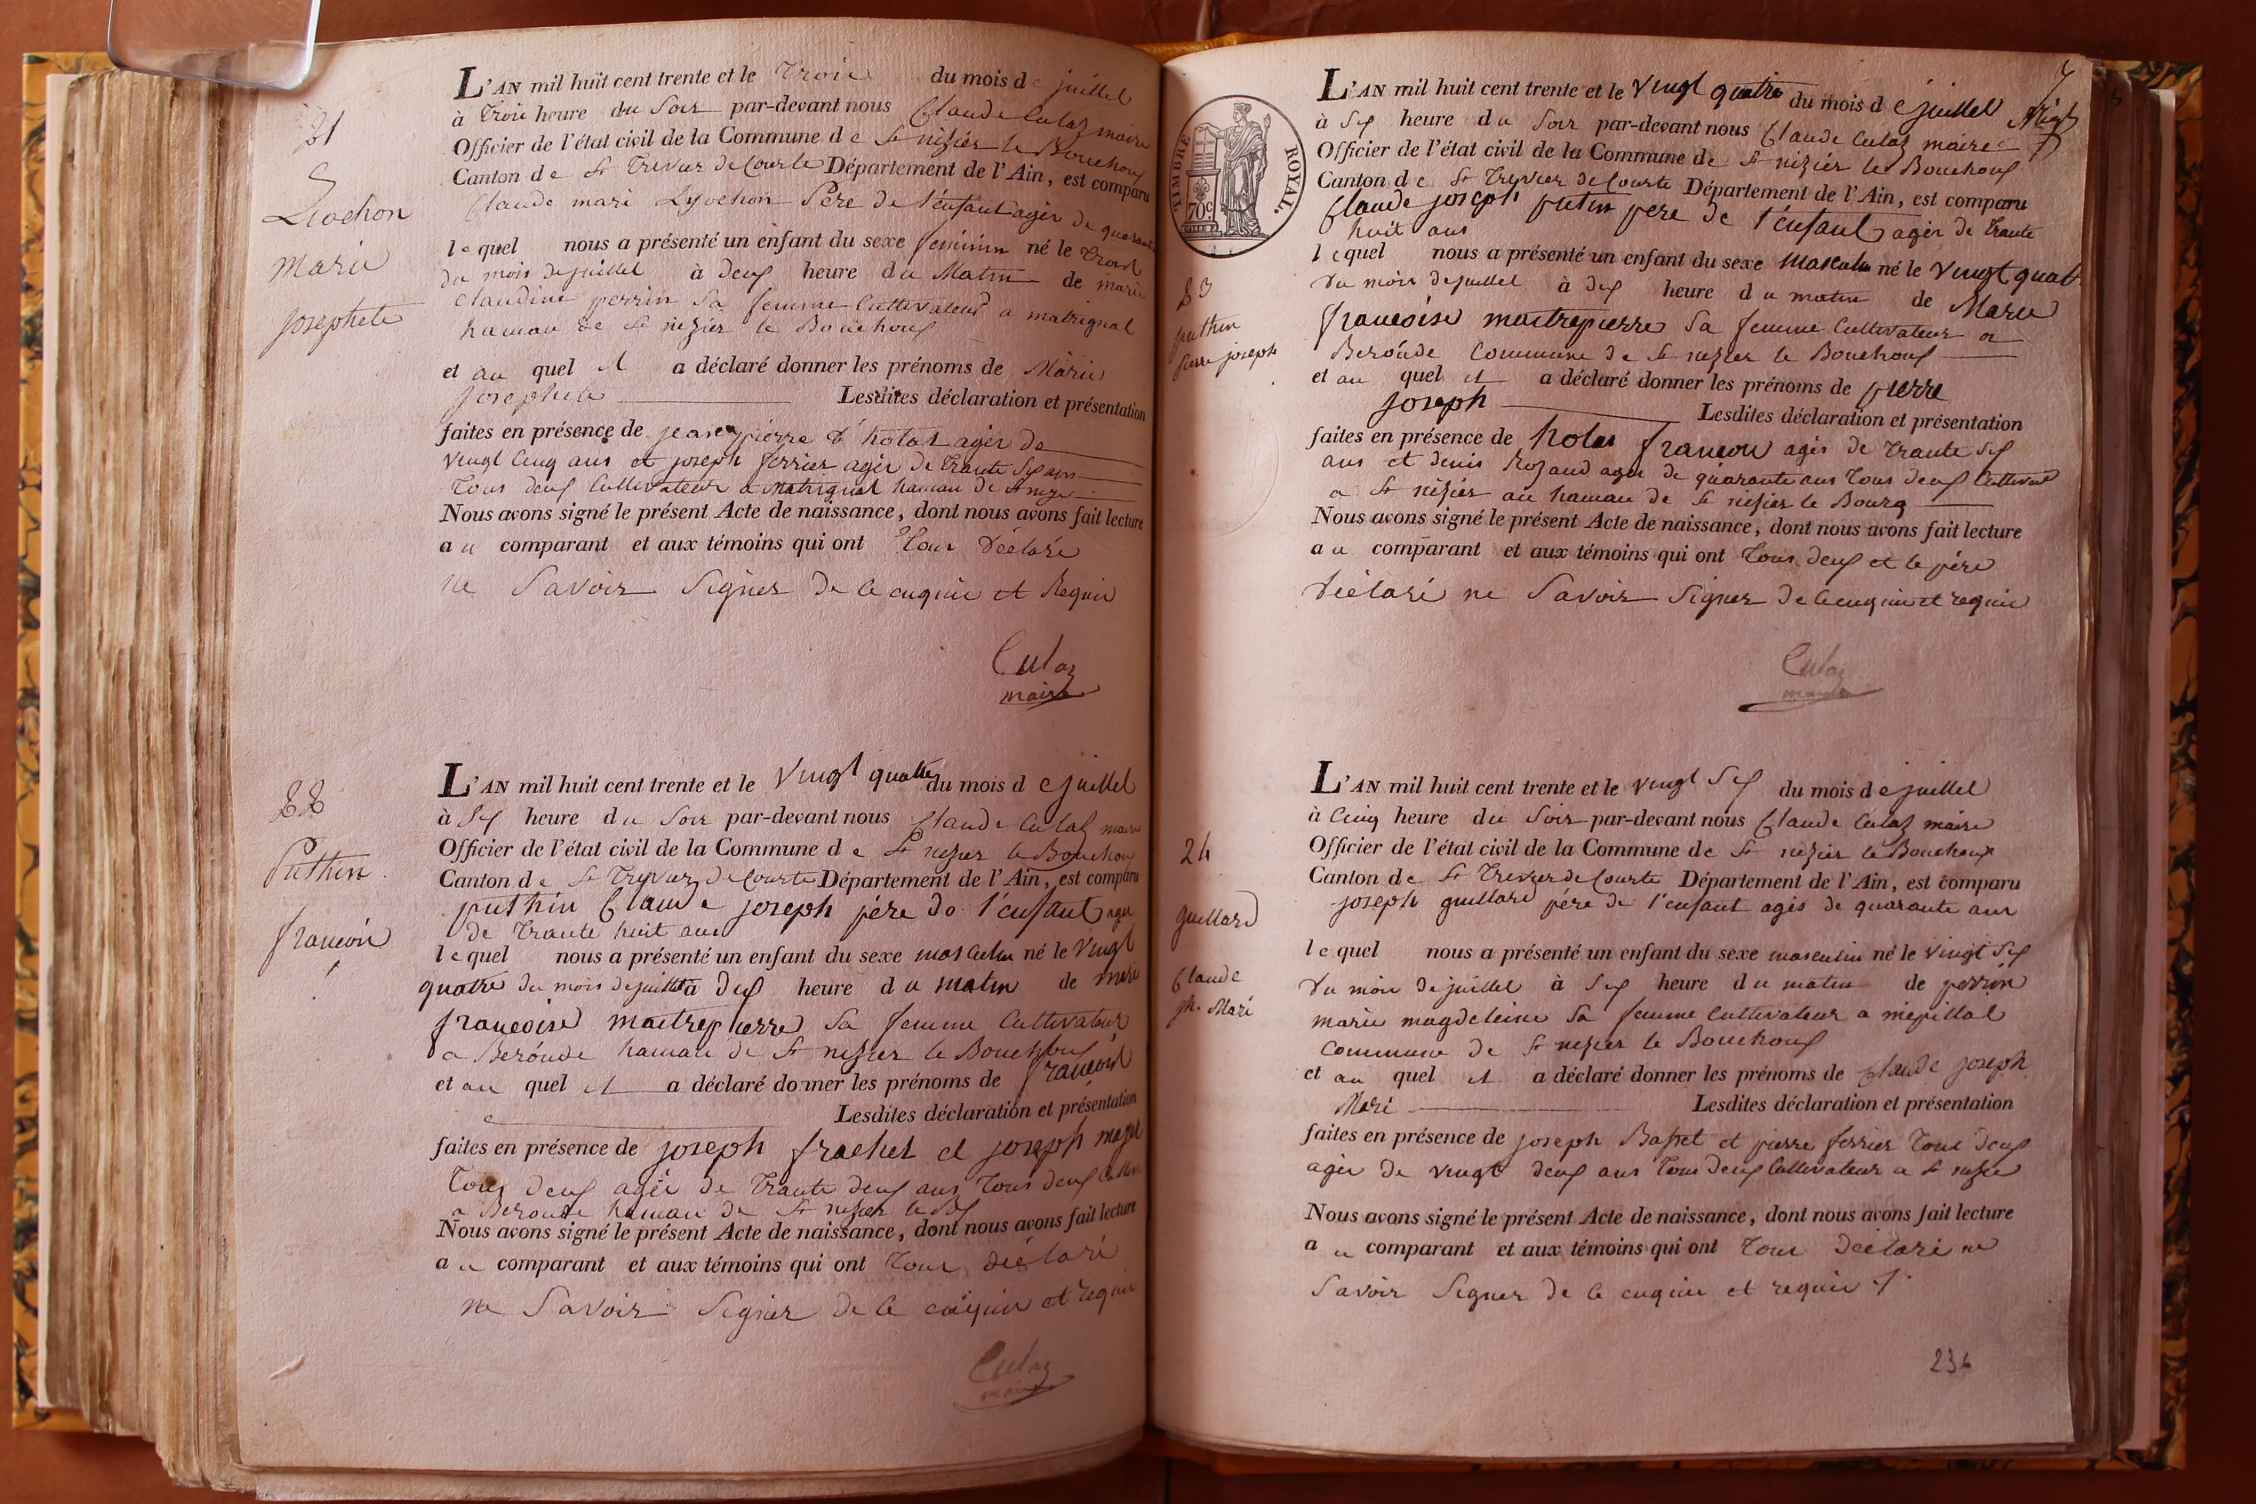 21
Livochon
Marie
Josephete
L'AN mil huit cent trente et le Trois du mois de juillet
à Trois heure du Soir par-devant nous Claude Culaz maire
Officier de l'état civil de la Commune de St nizier le Bouchoux
Canton de St Trivier de Courte Département de l'Ain, est comparu
Claude mari Père de l'enfant agér de quarante
lequel nous a présenté un enfant du sexe feminin né le Trois
du mois de juillet à deux heure du Matin de marie
Claudine perrin Sa femme Cultivateur a matrignat
hamau de St nizier le Bouchoux
et au quel il a déclaré donner les prénoms de Marie
Josephete Lesdites déclaration et présentation
faites en présence de jean pierre agér de
vingt Cinq ans et joseph ferrier agér de Trante Six ans
Tous deux Cultivateur a Matrignat hamau de St nizier
Nous avons signé le présent Acte de naissance, dont nous avons fait lecture
au comparant et aux témoins qui ont Tous déclaré
ne Savoir Signer de ce enquis et Requis
Culaz
maire
22
Puthin
françois
L'AN mil huit cent trente et le Vingt quatre du mois de juillet
à Six heure du Soir par-devant nous Claude Culaz maire
Officier de l'état civil de la Commune de St nizier le Bouchoux
Canton de St Tryvier de Courte Département de l'Ain, est comparu
puthin Claude joseph père de l'enfant agér
de Trante huit ans
lequel nous a présenté un enfant du sexe masculin né le Vingt
quatre du mois de juillet à deux heure du matin de marie
françoise maitrepierre Sa femme Cultivateur
a Berónde hamau de St nizier le Bouchoux
et au quel il a déclaré donner les prénoms de françois
Lesdites déclaration et présentation
faites en présence de joseph frachet et joseph
Tous deux agér de Trante deux ans Tous deux
a Beronde hamau de St nizier le
Nous avons signé le présent Acte de naissance, dont nous avons fait lecture
au comparant et aux témoins qui ont Tous déclaré
ne Savoir Signer de ce enquis et requis
Culaz
maire
TIMBRE ROYAL.
70c
23
puthin
pierre joseph
L'AN mil huit cent trente et le Vingt quatre du mois de juillet
à Six heure du Soir par-devant nous Claude Culaz maire
Officier de l'état civil de la Commune de St nizier le Bouchoux
Canton de St Tryvier de Courte Département de l'Ain, est comparu
Claude joseph putin pere de l'enfant agér de Trante
huit ans
lequel nous a présenté un enfant du sexe Masculin né le Vingt quatre
du mois de juillet à dix heure du matin de Marie
françoise maitrepierre Sa femme Cultivateur a
Berónde Commune de St nizier le Bouchoux
et au quel il a déclaré donner les prénoms de pierre
joseph Lesdites déclaration et présentation
faites en présence de françois agés de Trante Six
ans et denis Rozand agér de quarante ans Tous deux Cultivateur
a St nizier au hamau de St nizier le Bourg
Nous avons signé le présent Acte de naissance, dont nous avons fait lecture
au comparant et aux témoins qui ont Tous deux et le père
déclaré ne Savoir Signer de ce enquis et requis
Culaz
maire
24
guillard
Claude
jh. Mari
L'AN mil huit cent trente et le vingt Six du mois de juillet
à Cinq heure du Soir par-devant nous Claude Culaz maire
Officier de l'état civil de la Commune de St nizier le Bouchoux
Canton de St Trivier de Courte Département de l'Ain, est comparu
joseph guillard père de l'enfant agés de quarante ans
lequel nous a présenté un enfant du sexe masculin né le vingt Six
du mois de juillet à Six heure du matin de perrin
marie magdeleine Sa femme Cultivateur a mépillat
Commune de St nizier le Bouchoux
et au quel il a déclaré donner les prénoms de Claude joseph
Mari Lesdites déclaration et présentation
faites en présence de joseph Basset et pierre ferrier Tous deux
agér de vingt deux ans Tous deux Cultivateur a St nizier
Nous avons signé le présent Acte de naissance, dont nous avons fait lecture
au comparant et aux témoins qui ont Tous déclaré ne
Savoir Signer de ce enquis et requis
236